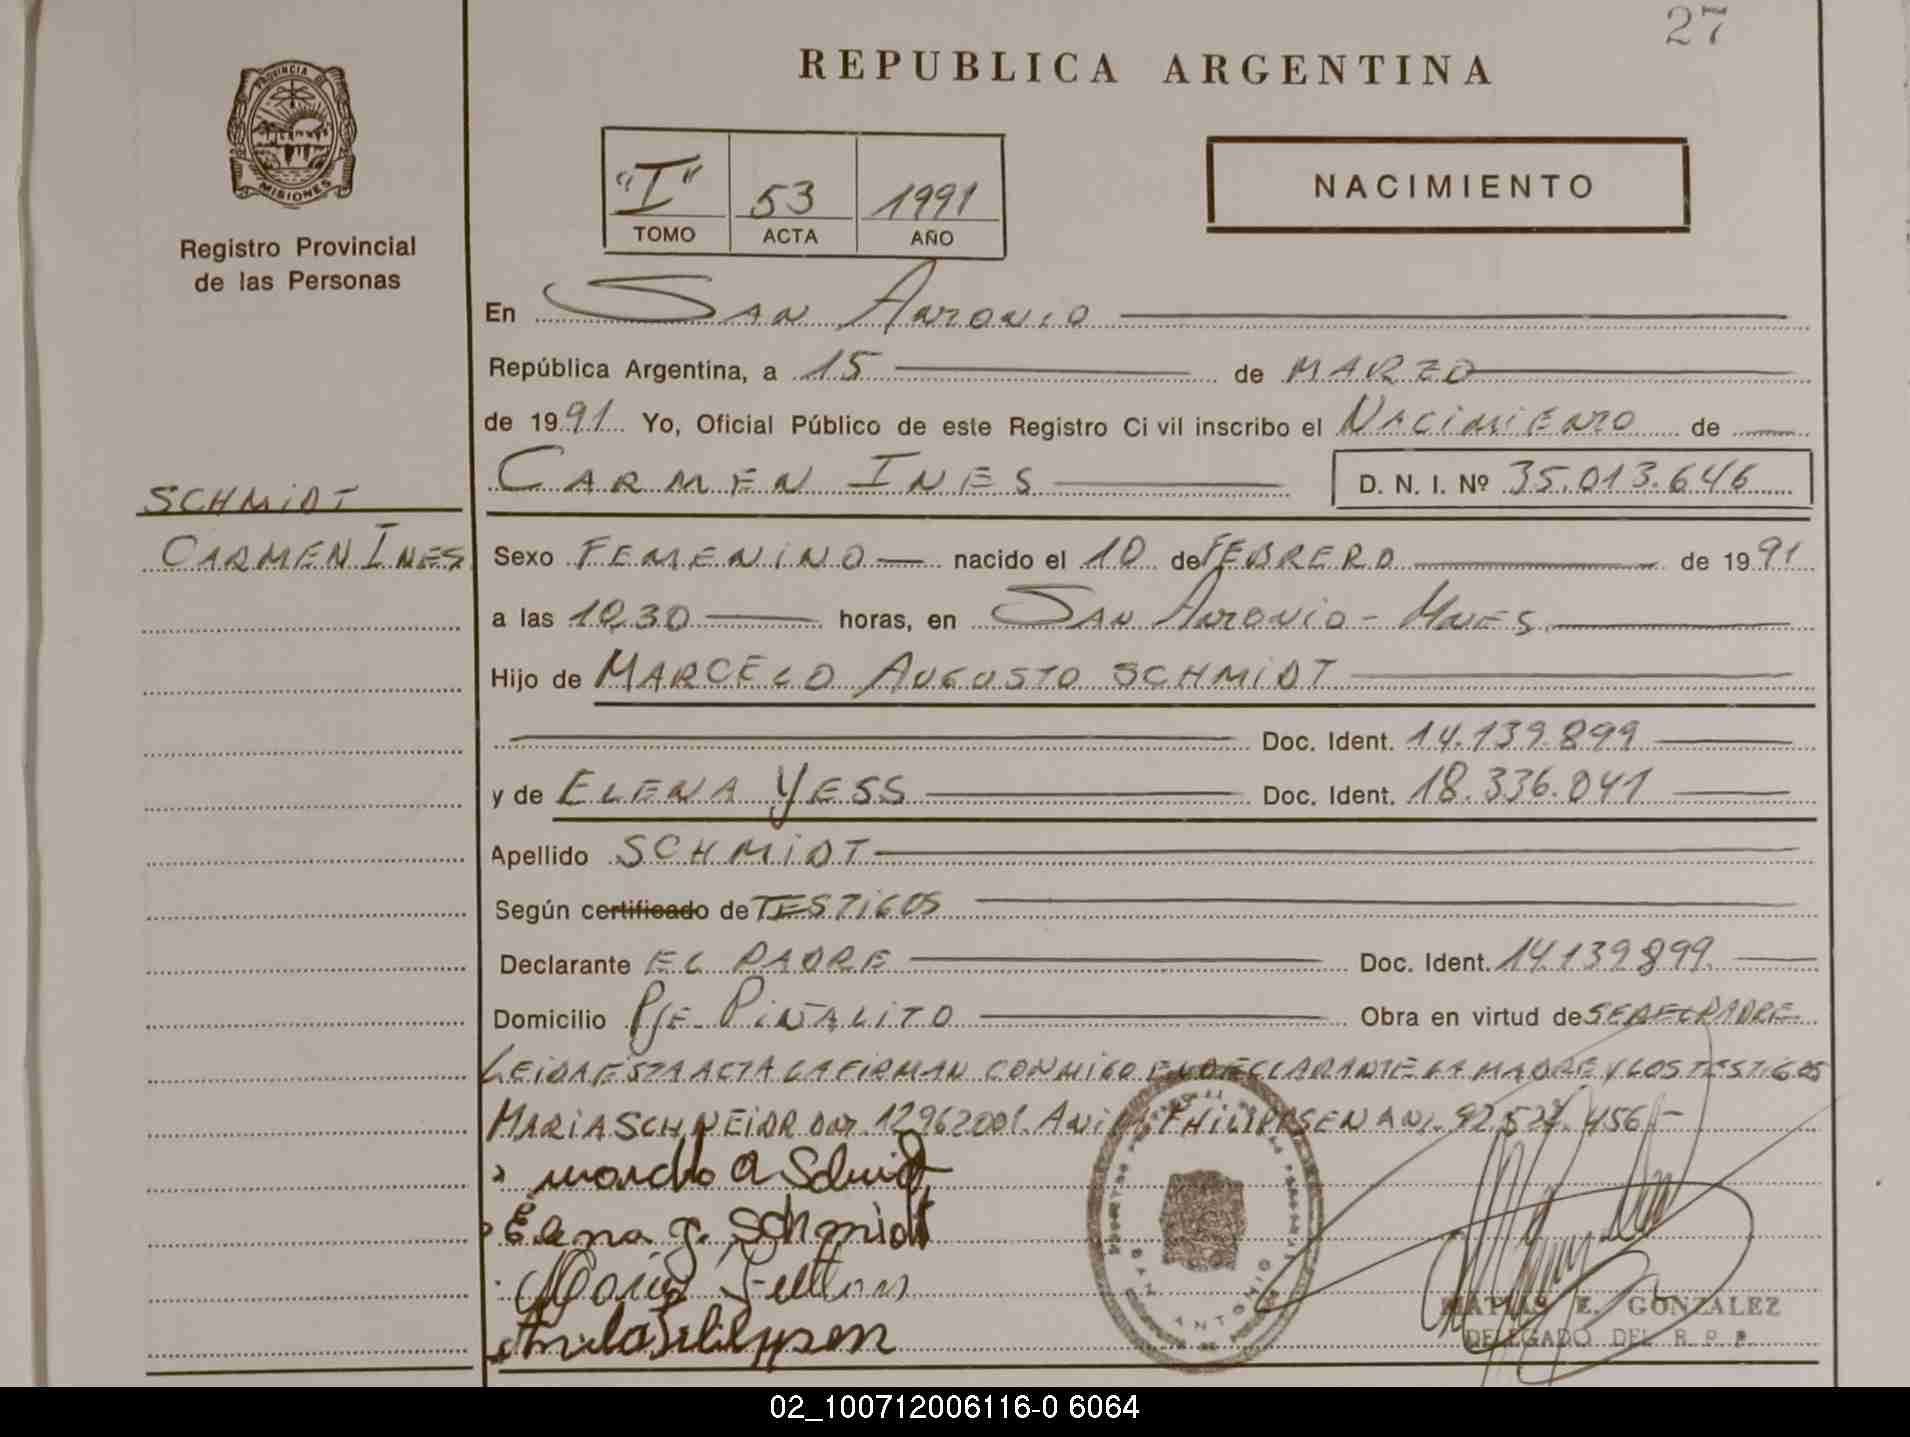 27
REPUBLICA ARGENTINA
PROVINCIA DE
MISIONES
Registro Provincial
de las Personas
"I" 53 1991
TOMO ACTA AÑO
NACIMIENTO
En SAN ANTONIO
República Argentina, a 15 de MARZO
de 1991 Yo, Oficial Público de este Registro Ci vil inscribo el NACIMIENTO de
CARMEN INES D. N. I. Nº 35.013.646
SCHMIDT
CARMEN INES
Sexo FEMENINO nacido el 10 de FEBRERO de 1991
a las 10,30 horas, en SAN ANTONIO - MNES.
Hijo de MARCELO AUGUSTO SCHMIDT
Doc. Ident. 14.139.899
y de ELENA YESS Doc. Ident. 18.336.041
Apellido SCHMIDT
Según certificado de TESTIGOS
Declarante EL PADRE Doc. Ident. 14.139.899
Domicilio PJE. PIÑALITO Obra en virtud de SER EL PADRE
LEIDA ESTA ACTA LA FIRMAN CONMIGO EL DECLARANTE LA MADRE Y LOS TESTIGOS
MARIA SCHNEIDR 12962001. PHILIPPSEN 92.527.456
Elena Y. Schmidt
SAN ANTONIO
MATIAS E. GONZALEZ
DELEGADO DEL R. P. P.
02_100712006116-0 6064